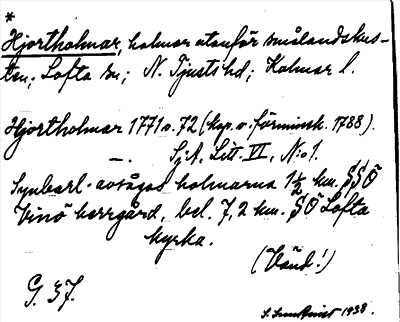 *
Hjortholmar, holmar utanför smålandskus-
ten; Lofta sn; N. Tjusts hd; Kalmar l.
Hjortholmar 1771 o. 72 (kop. o. förminsk. 1788).
—. SjA, Litt. VI, N:o 1.
Synbarl. avsågos holmarna 1½ km. SSÖ
Vinö herrgård, bel. 7,2 km. SÖ Lofta
kyrka.
(Vänd!)
G. 37.
1938.